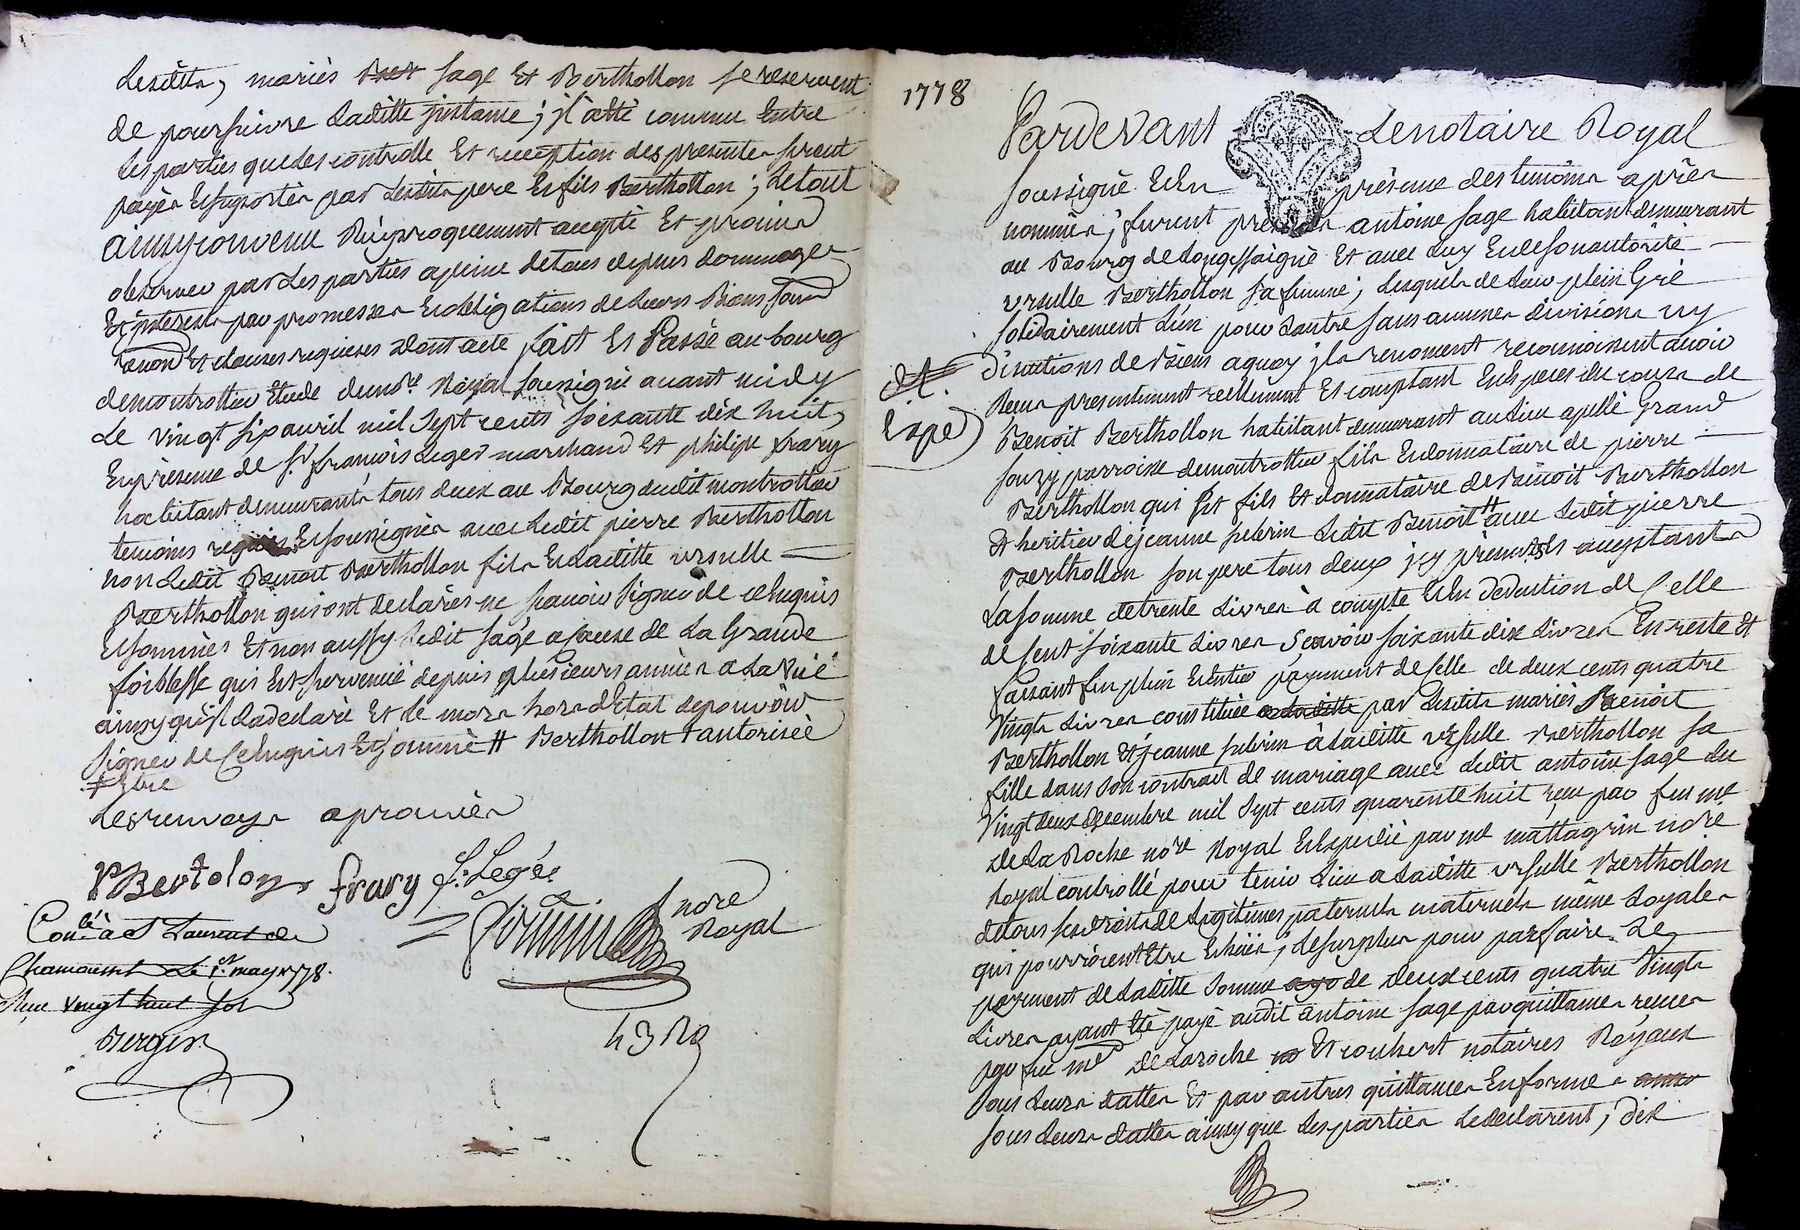 Lesdits, mariés Sage Et Berthollon se reservent
de poursuivre Laditte jnstance; jl a été convenu Entre
les parties que les controlle Et reception des presentes seront
payés Et suportés par Lesdits pere Et fils Berthollon; Le tout
ainsy convenu Réciproquement accepté Et promis
observer par Les parties a peine de tous depens dommages
Et jnterests par promesses Et obligations de Leurs Biens sous
renon.on Et clauses requises Dont acte fait Et Passé au bourg
de montrottier Etude du no.re Royal soussigné avant midy
Le vingt six avril mil sept cents soixante dix huit,
En présence de S.r francois Leger marchand Et philipe frary
habitant demeurants tous deux au Bourg dudit montrottier
temoins requis Et soussignés avec Ledit pierre Berthollon
non Ledit Benoit Berthollon fils Et Laditte ursulle
Berthollon qui ont declarés ne scavoir signer de ce Enquis
Et sommés Et non aussy Ledit Sage a cause de La Grande
foiblesse qui Est survenüe depuis plusieurs années a La vüe
ainsy qu'jl La declaré Et de mors hors d'Etat de pouvoir
signer de ce Enquis Et sommé # Berthollon + autorisée
+ Etre
Les renvoys aprouvés
P Bertolon frary f. Legér
no.re
Royal
Con.lé à S.t Laurent de
Chamousset Le 1.er may 1778.
Reçu vingt huit sols
Bergier
1778
Pardevant Le notaire Royal
soussigné Et En présence des temoins aprés
nommés; furent presents antoine Sage habitant demeurant
au Bourg de Longessaigne Et avec Luy Et de son autorité
ursulle Berthollon sa femme; Lesquels de Leur plein Gré
solidairement L'un pour L'autre sans aucunes divisions ny
discutions de Biens a quoy jls renoncent reconnoissent avoir
Recu presentement reellement Et comptant En Especes du cours de
Expé
Benoit Berthollon habitant demeurant au Lieu apellé Grand
souzy parroisse de montrottier fils Et donnataire de pierre
Berthollon qui Est fils Et donnataire de Benoit Berthollon
Et heritier de jeanne pelerin Ledit Benoit # avec Ledit pierre
Berthollon son pere tous deux jcy présents Et acceptants
La somme de trente Livres à compte Et En deduction de Celle
de Cent soixante Livres Scavoir soixante dix Livres En reste Et
faisant fin plein Et Entier payement de Celle de deux cents quatre
Vingts Livres constituée a Laditte par Lesdits mariés Benoit
Berthollon Et jeanne pelerin à Laditte ursulle Berthollon sa
fille dans son contrat de mariage avec Ledit antoine Sage du
Vingt deux decembre mil sept cents quarente huit reçu par feu me
De La Roche no.re Royal Et Expedié par me mattagrin no.re
Royal controllé pour tenir Lieu a Laditte ursulle Berthollon
de tous ses droits de Legitimes paternels maternels même Loyales
qui pourroient Etre Echües; Le surplus pour parfaire Le
payement de Laditte somme de deux cents quatre Vingts
Livres ayant Eté payé audit antoine Sage par quittances recues
par feu me DeLaroche Et couhert notaires Royaux
sous Leurs dattes Et par autres quittances En forme
sous Leurs dattes ainsy que Les parties Le declarent; dix